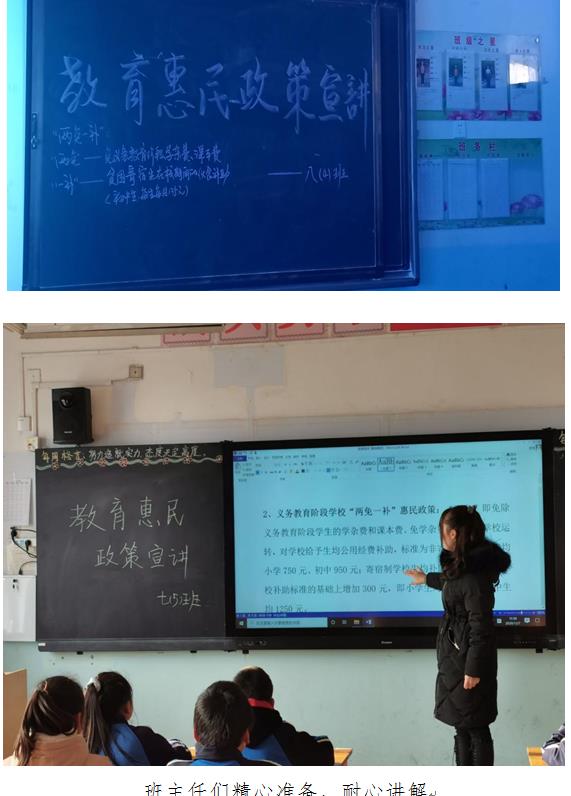 教育惠民政策宣讲
班级之星
"两免一补"
"两免"——免义务教育阶段学杂费、课本费
班务栏
"一补"——贫困寄宿生在校期间
——八(4)班
每周格言：努力造就实力，态度决定高度。
教育惠民
政策宣讲
七(5)班
2、义务教育阶段学校“两免一补”惠民政策：
即免除
义务教育阶段学生的学杂费和课本费、免学杂
学校运
转，对学校给予生均公用经费补助，标准为非
小学 750 元、初中 950 元；寄宿制学校生均补
校补助标准的基础上增加 300 元，即小学生
均 1250 元。
班主任们精心准备，耐心讲解。